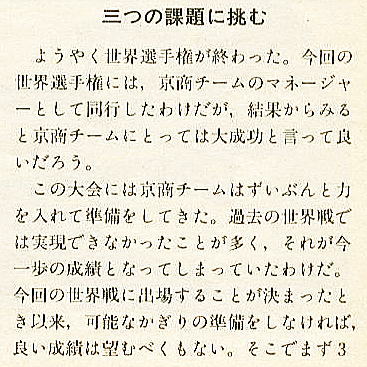 三つの課題に挑む
ようやく世界選手権が終わった。今回の
世界選手権には，京商チームのマネージャ
ーとして同行したわけだが，結果からみる
と京商チームにとっては大成功と言って良
いだろう。
この大会には京商チームはずいぶんと力
を入れて準備をしてきた。過去の世界戦で
は実現できなかったことが多く，それが今
一歩の成績となってしまっていたわけだ。
今回の世界戦に出場することが決まったと
き以来，可能なかぎりの準備をしなければ，
良い成績は望むべくもない。そこでまず3